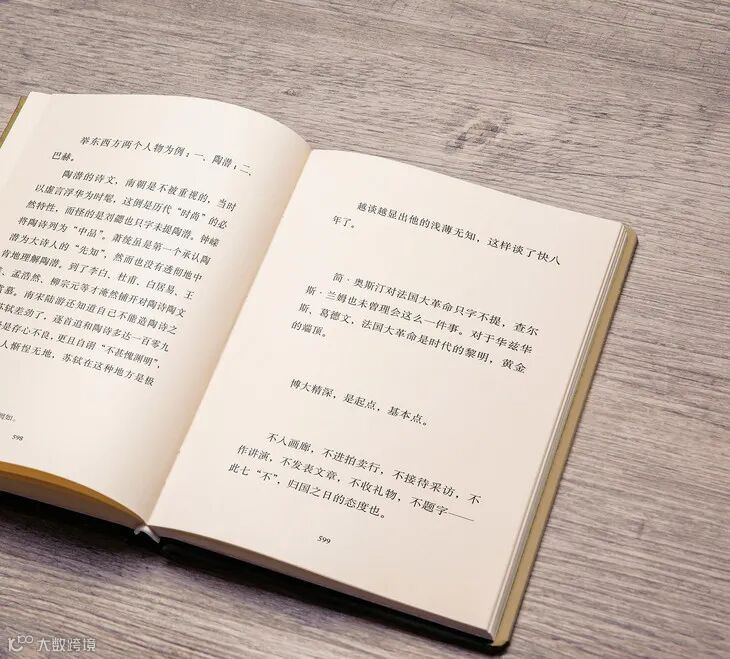 举东西方两个人物为例：一、陶潜；二、
巴赫。
陶潜的诗文，南朝是不被重视的，当时
以虚言浮华为时髦，这倒是历代“时尚”的必
然特性，而怪的是刘勰也只字未提陶潜。钟嵘
将陶诗列为“中品”。萧统虽是第一个承认陶
潜为大诗人的“先知”，然而也没有透彻地中
肯地理解陶潜。到了李白、杜甫、白居易、王
、孟浩然、柳宗元等才淹然铺开对陶诗陶文
慕。南宋陆游还知道自己不能造陶诗之
苏轼差劲了，逐首追和陶诗多达一百零九
是存心不良，更且自诩“不甚愧渊明”，
人惭惶无地，苏轼在这种地方是极
如。
598
越谈越显出他的浅薄无知，这样谈了快八
年了。
简·奥斯汀对法国大革命只字不提，查尔
斯·兰姆也未曾理会这么一件事。对于华兹华
斯、葛德文，法国大革命是时代的黎明，黄金
的端顶。
博大精深，是起点，基本点。
不入画廊，不进拍卖行，不接待采访，不
作讲演，不发表文章，不收礼物，不题字——
此七“不”，归国之日的态度也。
599
大数跨境